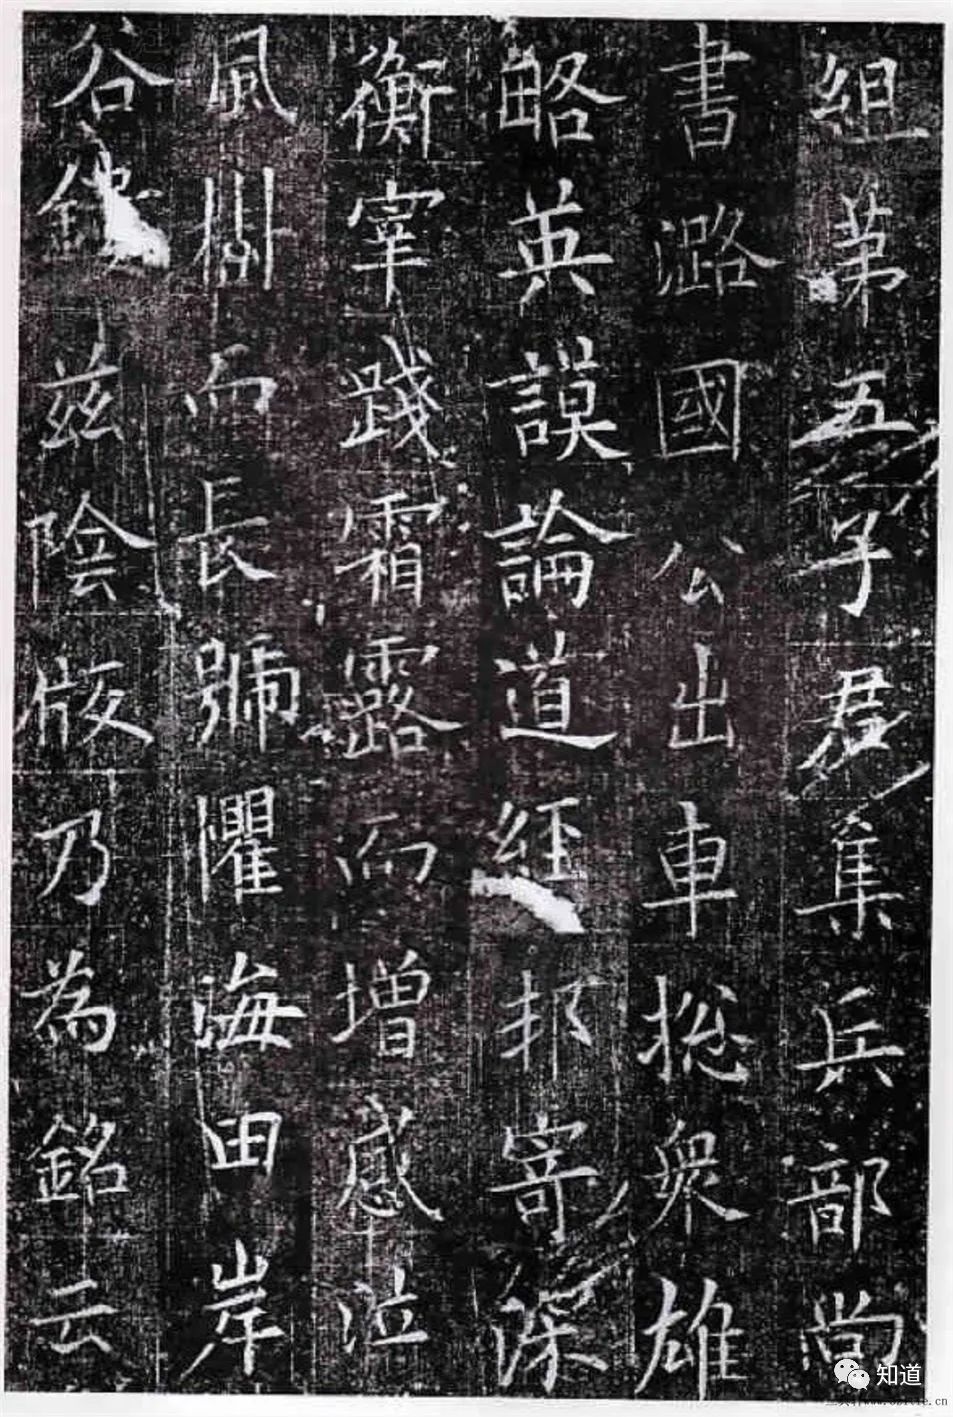 組第五子君集兵部尚
書潞國公出車摠衆雄
略英謨論道經邦寄深
衡宰踐霜露而增感泣
風樹而長號懼海田岸
谷茲陰版乃為銘云
知道